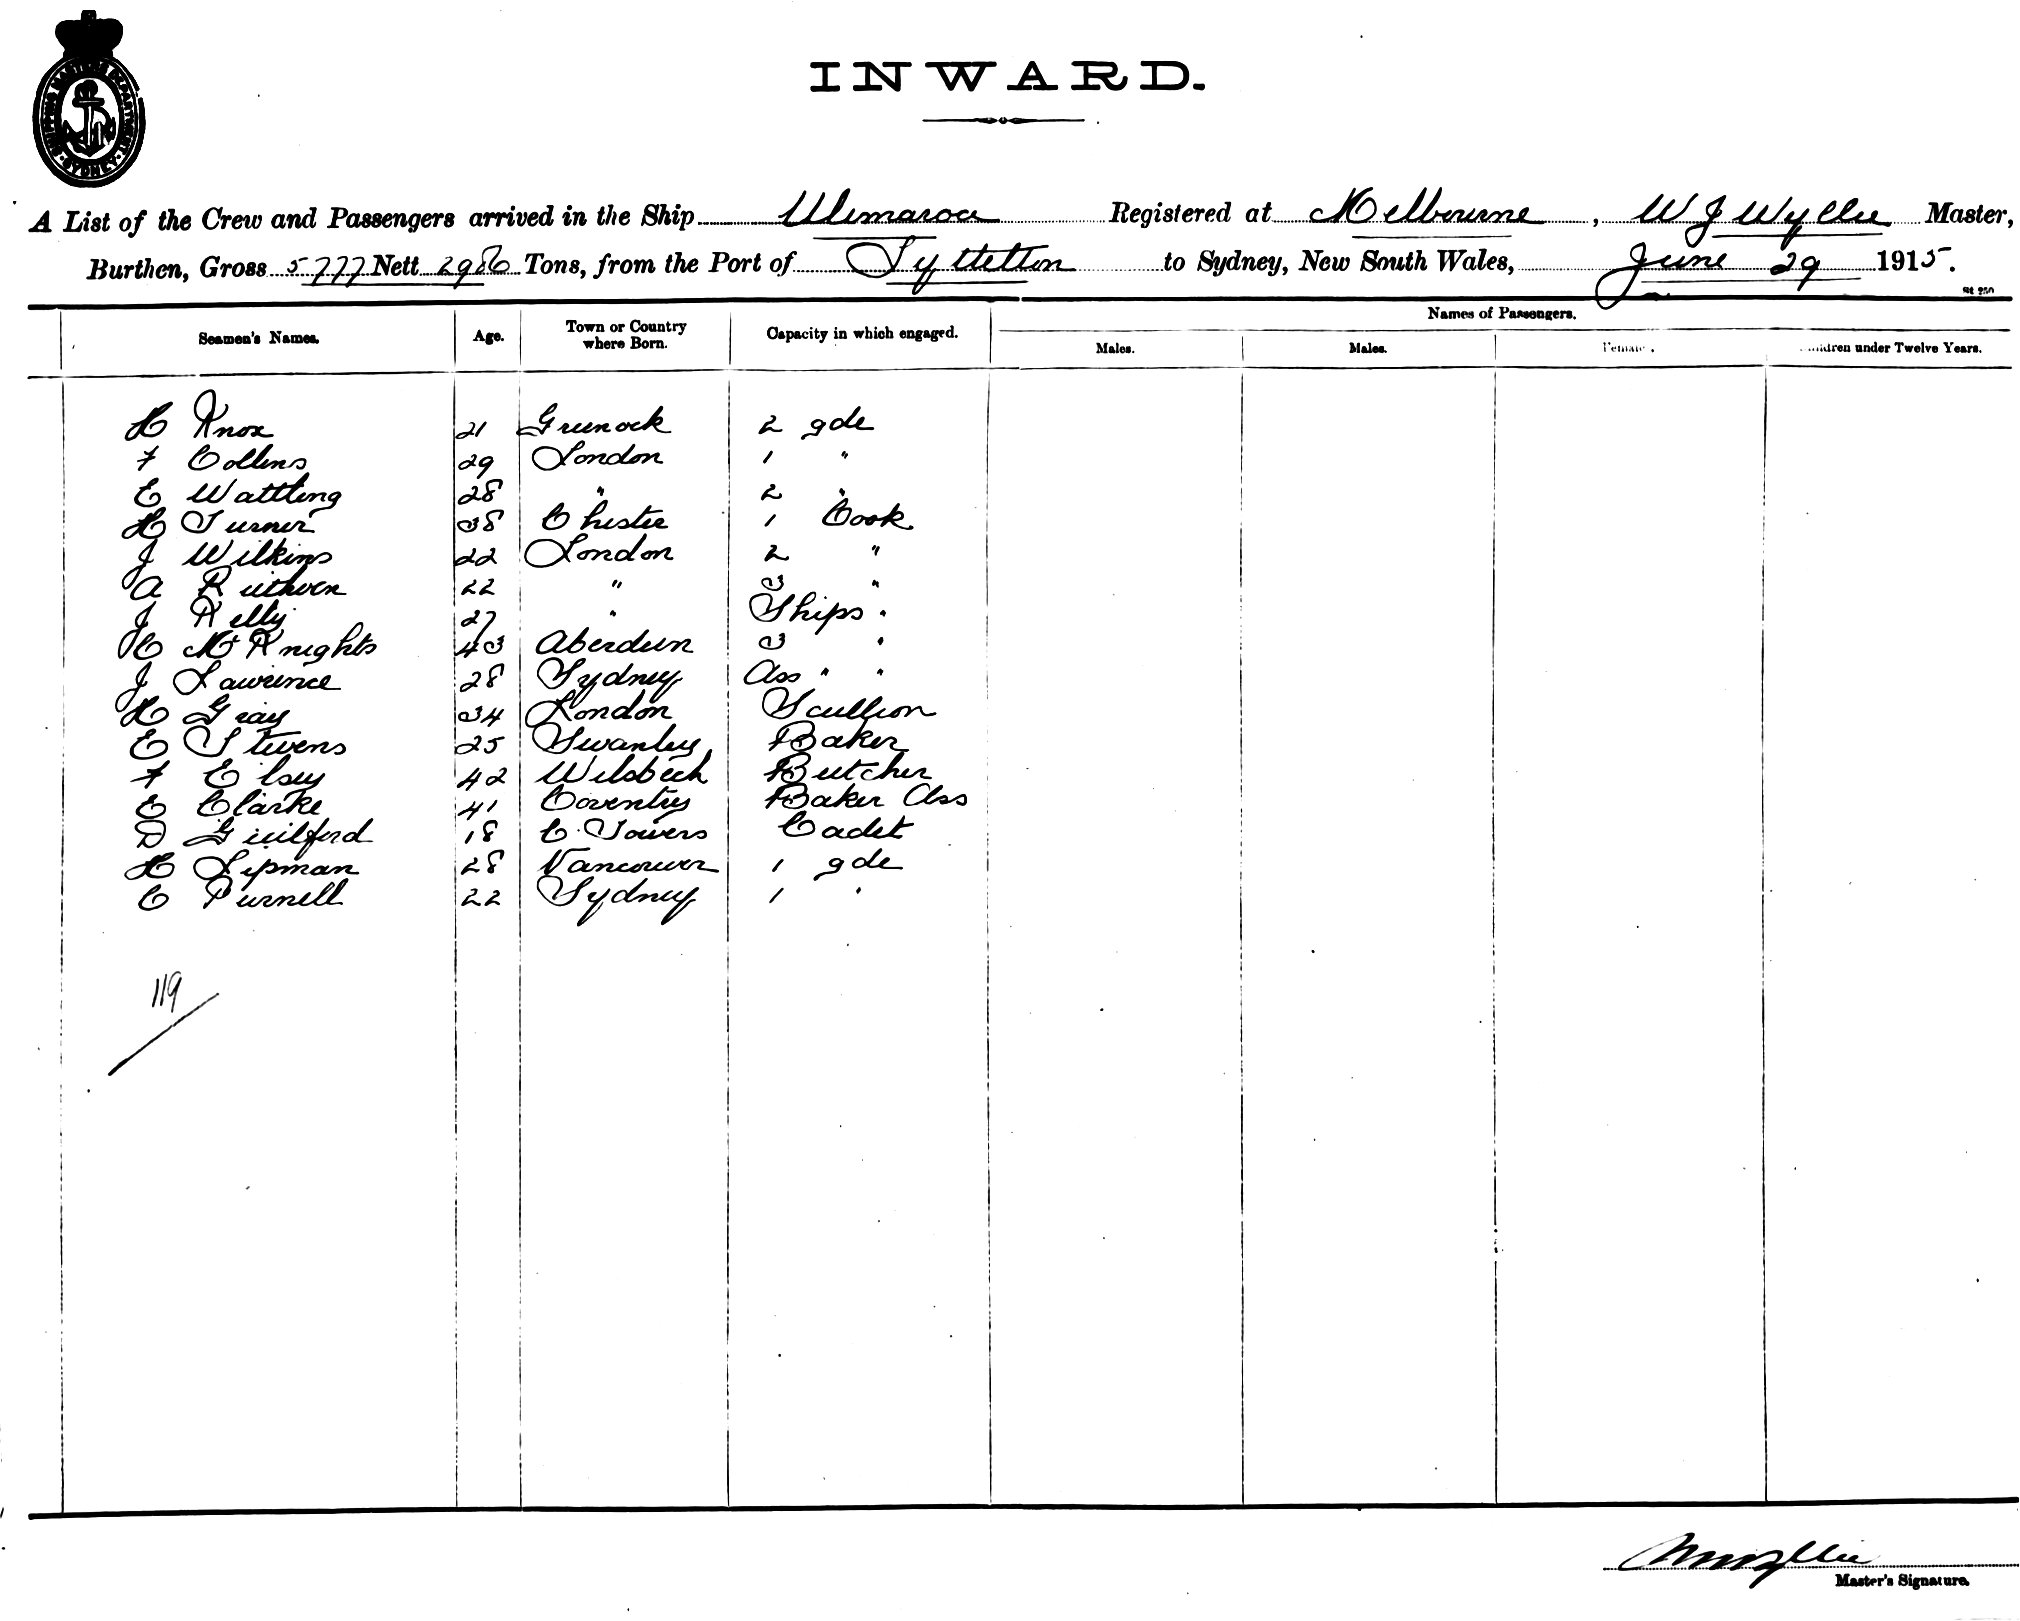 SHIPPING MASTERS DEPARTMENT SYDNEY
INWARD.
A List of the Crew and Passengers arrived in the Ship Ulimaroa Registered at Melbourne, W J Wyllie Master,
Burthen, Gross 5777 Nett 2986 Tons, from the Port of Lyttelton to Sydney, New South Wales, June 29 1915.
Names of Passengers.
Seamen's Names. Age. Town or Country where Born. Capacity in which engaged. Males. Males. Children under Twelve Years.
H Knox 21 Greenock 2 gde
F Collins 29 London 1 "
E Wattling 28 " 2 "
H Turner 38 Chester 1 Cook
J Wilkins 22 London 2 "
A Ruthven 22 " 3 "
J Kelly 27 " Ships "
C McKnights 43 Aberdeen 3 "
J Lawrence 28 Sydney Ass " "
H Gray 34 London Scullion
E Stevens 25 Swanley Baker
F Elsey 42 Wisbech Butcher
C Clarke 41 Coventry Baker Ass
D Guilford 18 C. Towers Cadet
H Lipman 28 Vancouver 1 gde
C Purnell 22 Sydney 1 "
119
WJWyllie
Master's Signature.